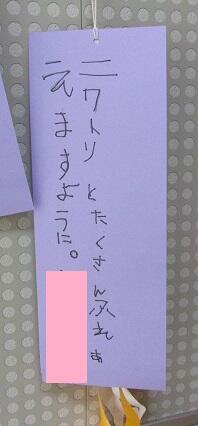 ニワトリとたくさんふれあ
えますように。